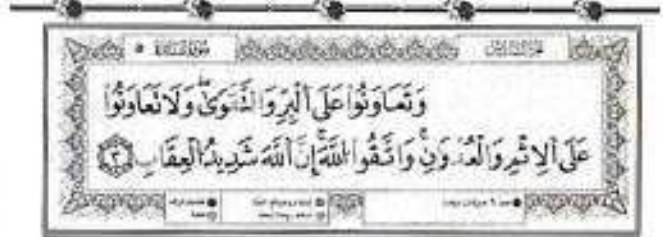 الجزء السادس سورة المائدة ٥
وَتَعَاوَنُوا عَلَى ٱلْبِرِّ وَٱلتَّقْوَىٰ ۖ وَلَا تَعَاوَنُوا
عَلَى ٱلْإِثْمِ وَٱلْعُدْوَٰنِ ۚ وَٱتَّقُوا ٱللَّهَ ۖ إِنَّ ٱللَّهَ شَدِيدُ ٱلْعِقَابِ ٢